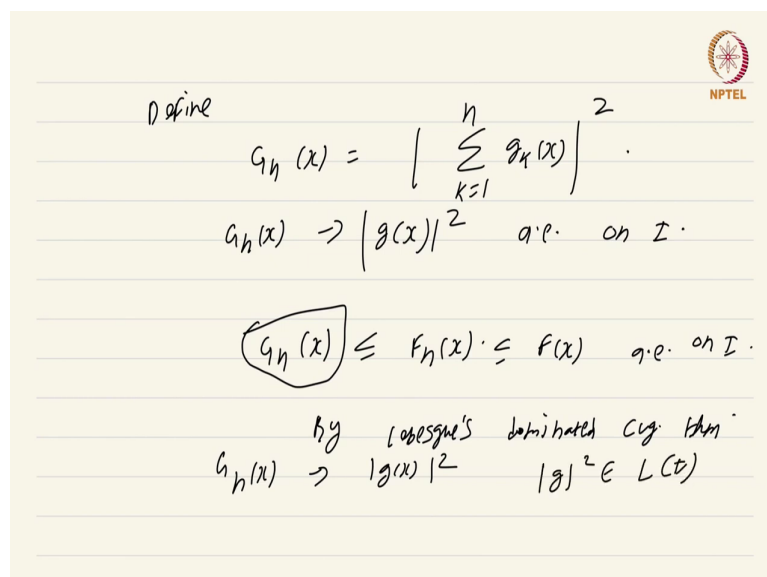 NPTEL
Define
Gn(x) = | n ∑ k=1 gk(x) |^2 .
Gn(x) → |g(x)|^2 a.e. on I.
Gn(x) ≤ Fn(x) · ≤ F(x) a.e. on I.
By Lebesgue's dominated cvg. thm
Gn(x) → |g(x)|^2 |g|^2 ∈ L(I)